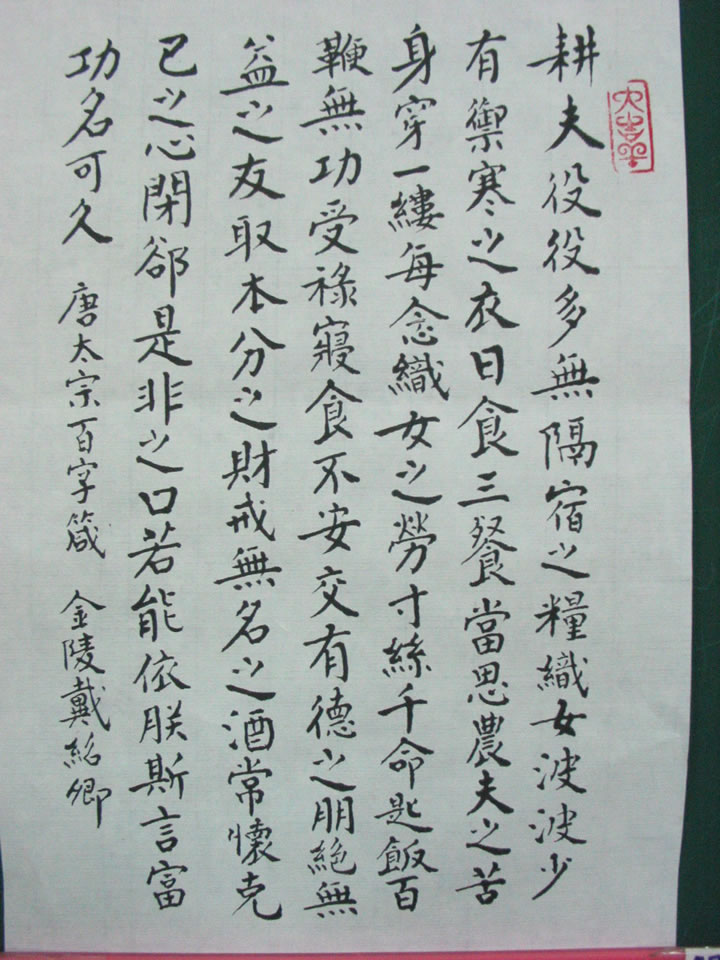 大吉羊
耕夫役役多無隔宿之糧織女波波少
有禦寒之衣日食三餐當思農夫之苦
身穿一縷每念織女之勞寸絲千命匙飯百
鞭無功受祿寢食不安交有德之朋絕無
益之友取本分之財戒無名之酒常懷克
己之心閉卻是非之口若能依朕斯言富
功名可久 唐太宗百字箴 金陵戴紹卿